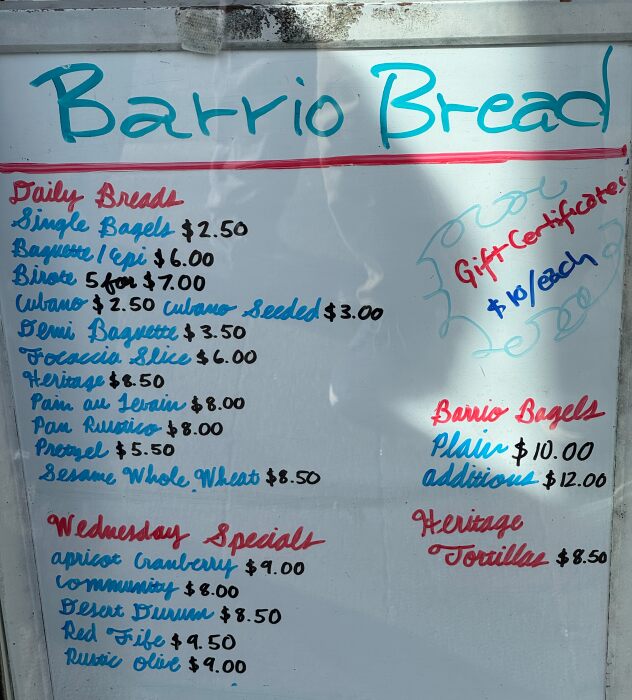 Barrio Bread
Daily Breads
Single Bagels $2.50
Baguette/Epi $6.00
Birote 5 for $7.00
Cubano $2.50 Cubano Seeded $3.00
Demi Baguette $3.50
Focaccia Slice $6.00
Heritage $8.50
Pain au Levain $8.00
Pan Rustico $8.00
Pretzel $5.50
Sesame Whole Wheat $8.50
Wednesday Specials
apricot Cranberry $9.00
Community $8.00
Desert Durum $8.50
Red Fife $9.50
Rustic Olive $9.00
Gift Certificates
$10/each
Barrio Bagels
Plain $10.00
additions $12.00
Heritage
Tortillas $8.50